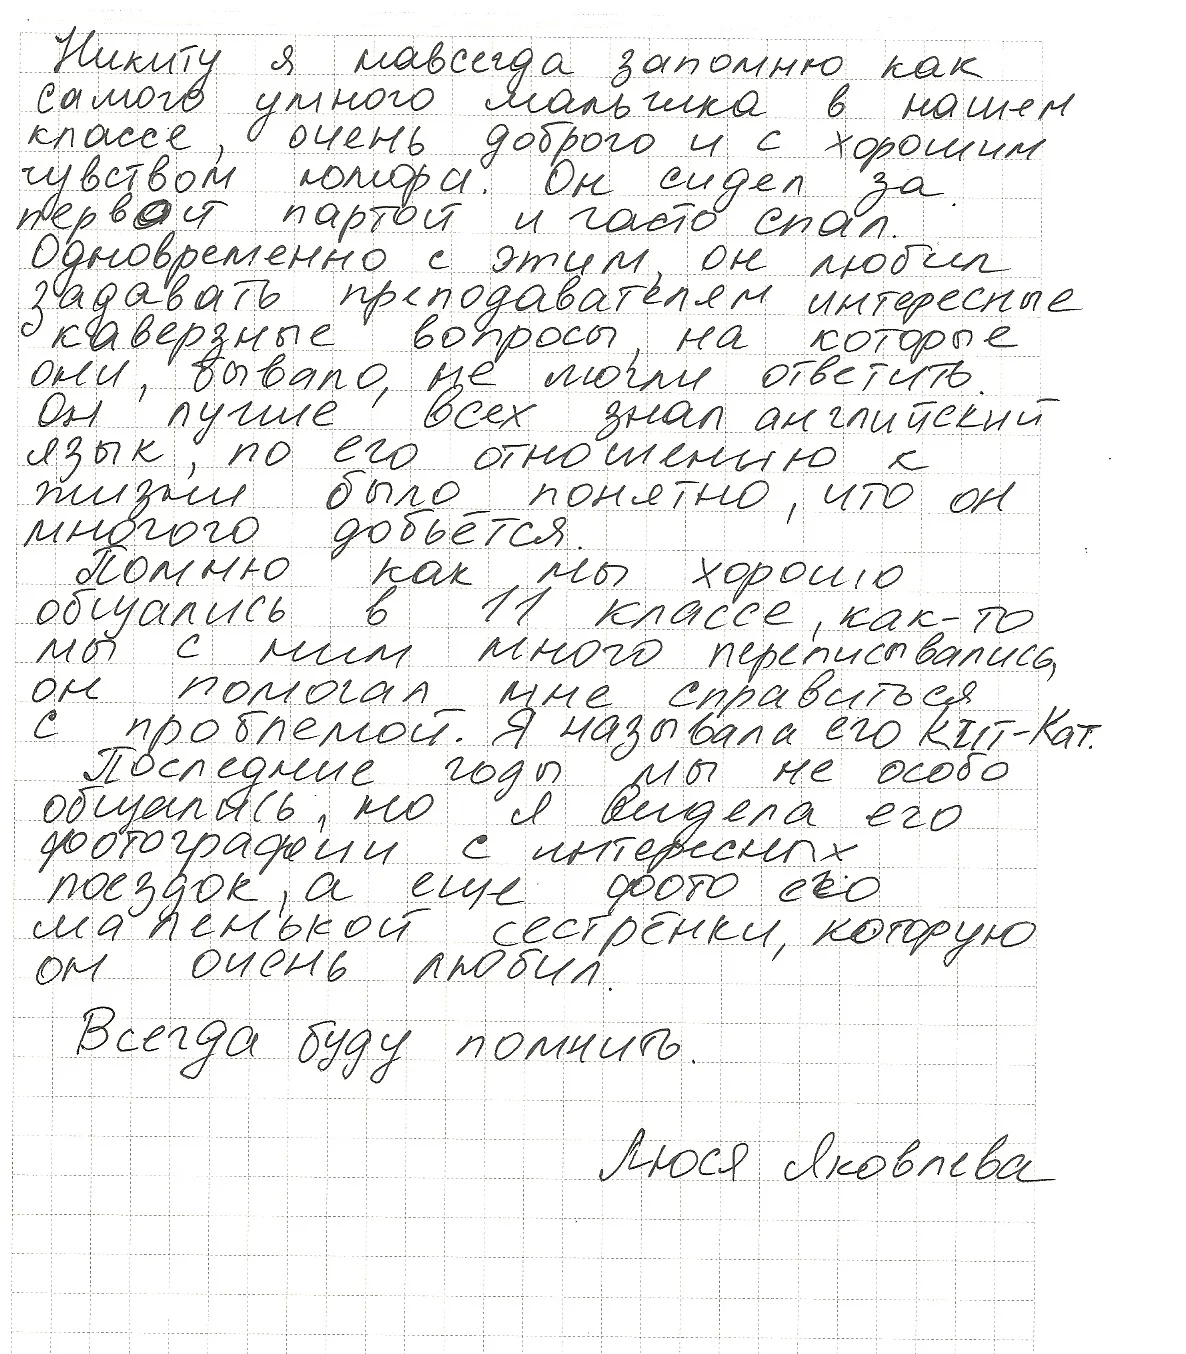 Никиту я навсегда запомню как
самого умного мальчика в нашем
классе, очень доброго и с хорошим
чувством юмора. Он сидел за
первой партой и часто спал.
Одновременно с этим, он любил
задавать преподавателям интересные
каверзные вопросы, на которые
они, бывало, не могли ответить.
Он лучше всех знал английский
язык, по его отношению к
жизни было понятно, что он
многого добьётся.
Помню как мы хорошо
общались в 11 классе, как-то
мы с ним много переписывались,
он помогал мне справиться
с проблемой. Я называла его Кит-Кат.
Последние годы мы не особо
общались, но я видела его
фотографии с интересных
поездок, а еще фото его
маленькой сестрёнки, которую
он очень любил.
Всегда буду помнить.
Люся Яковлева